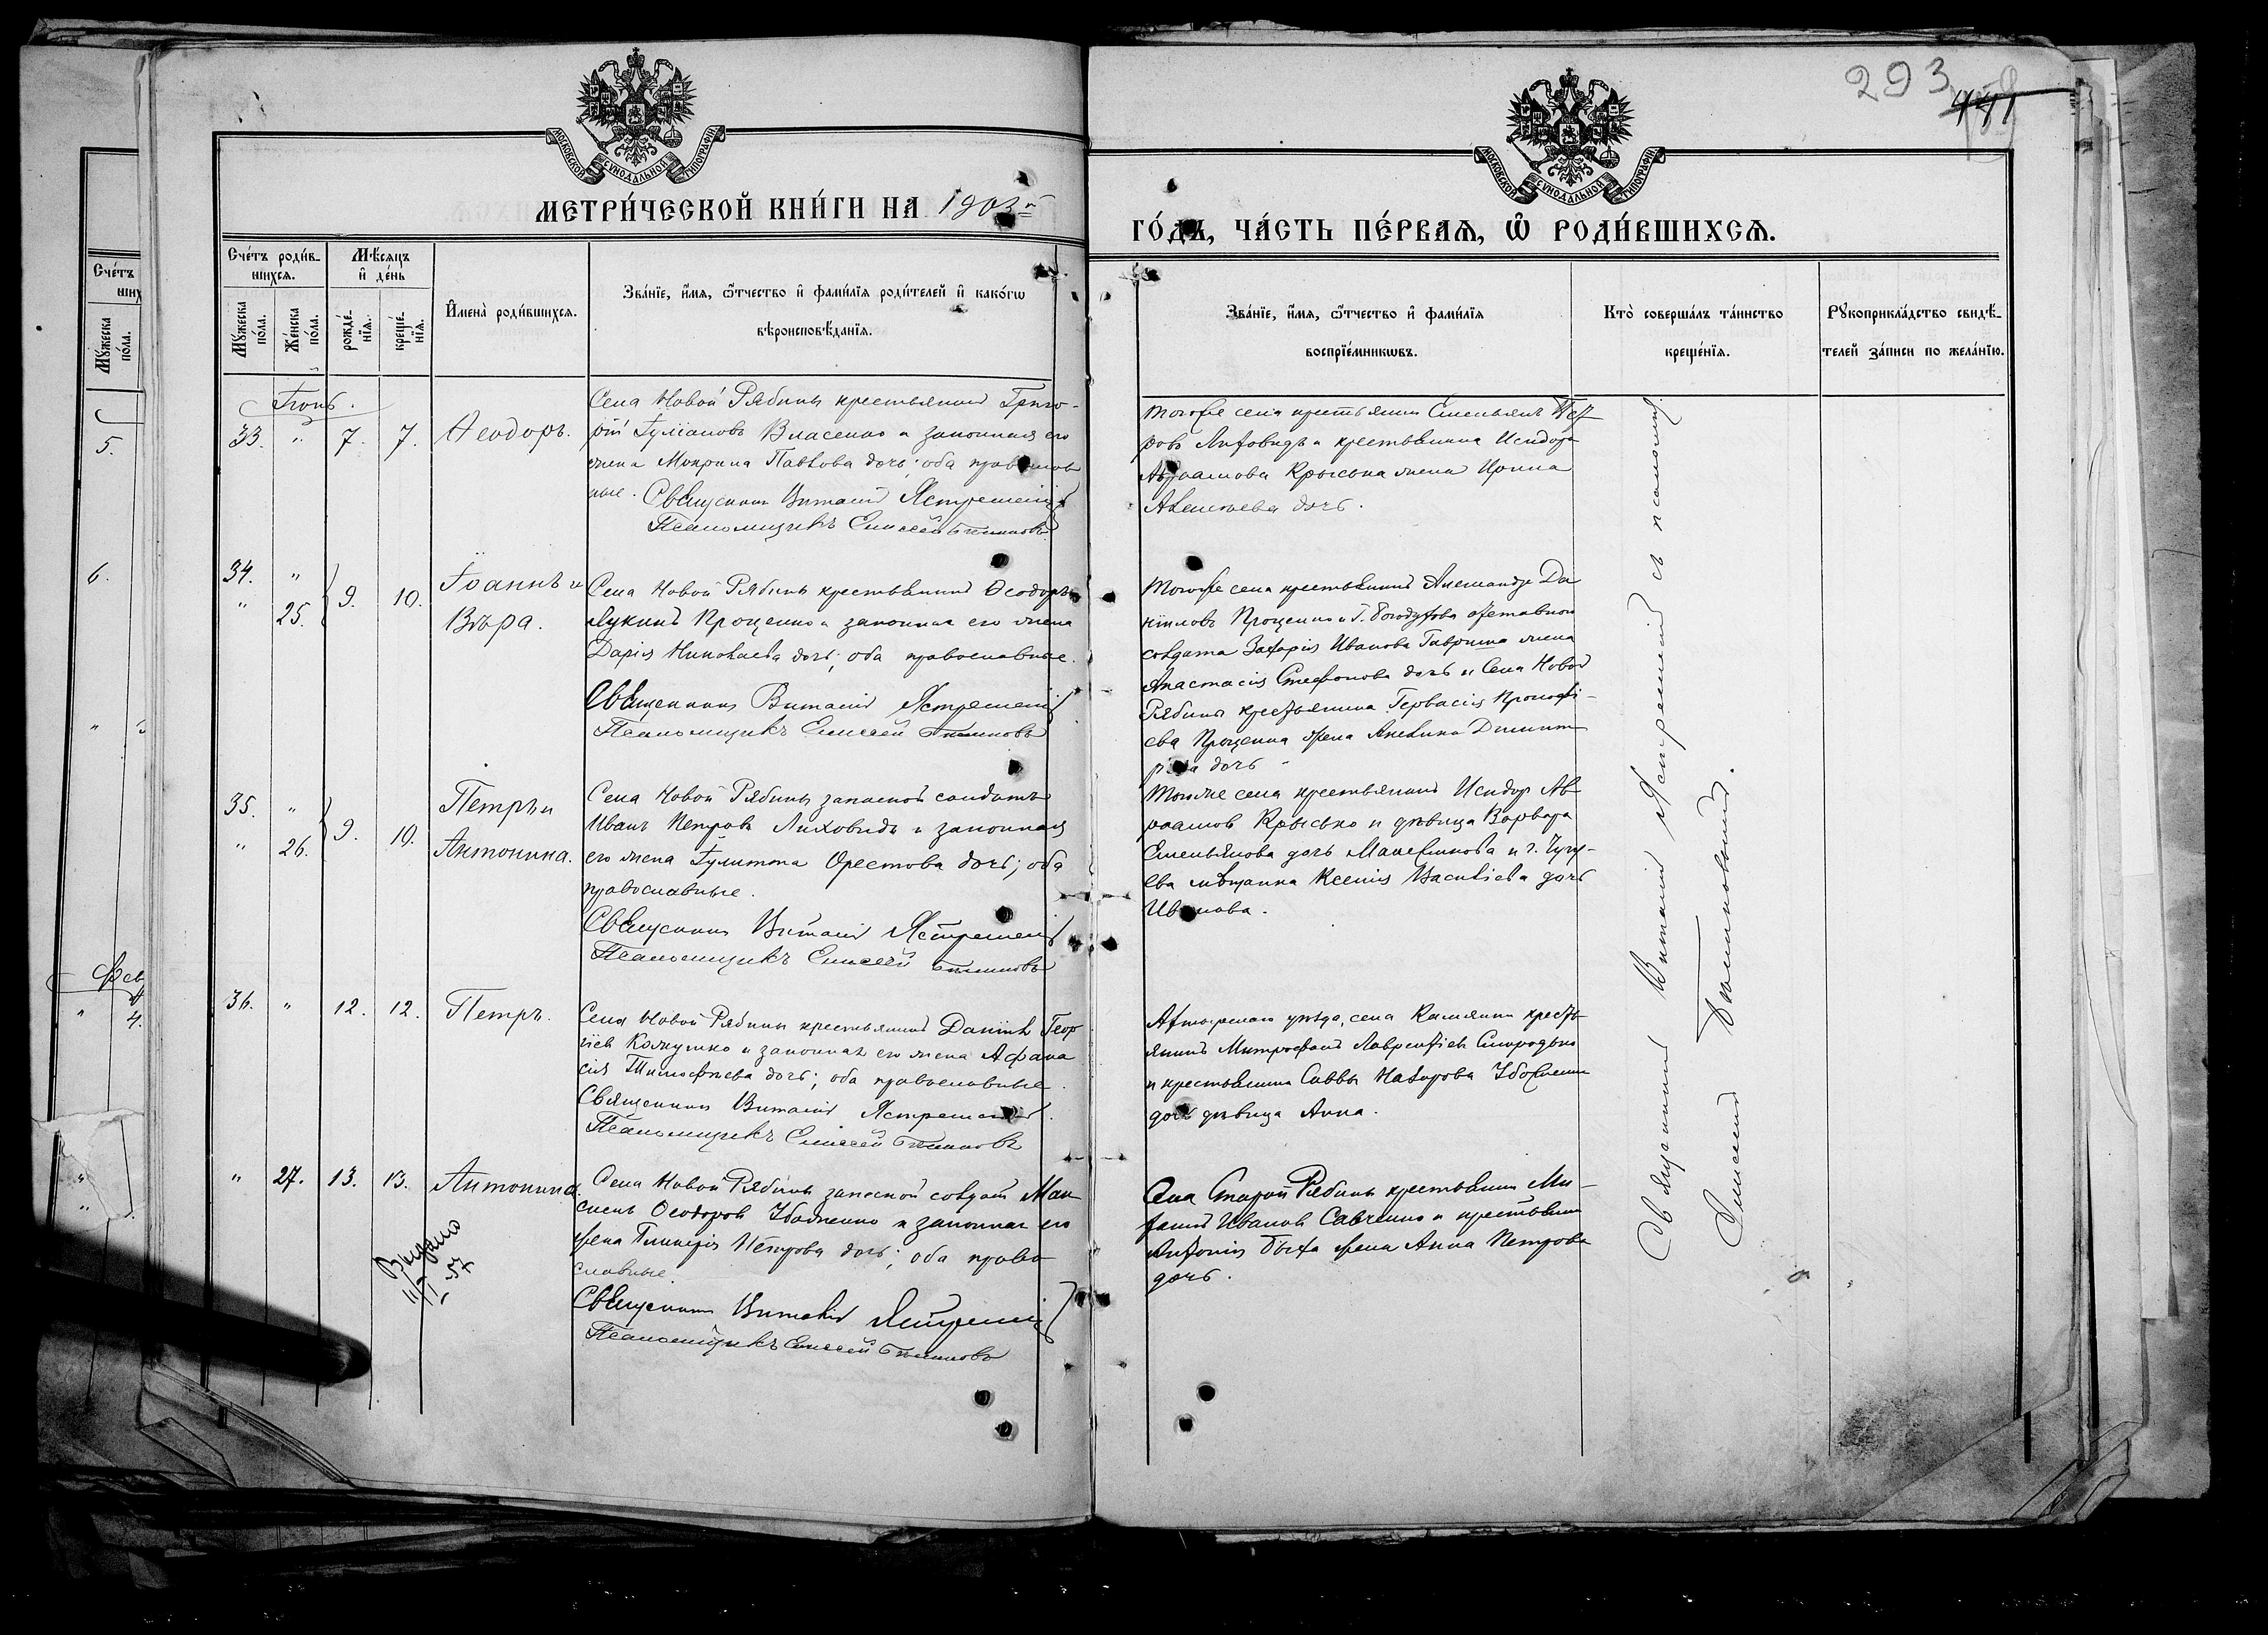 293
441
МОСКОВСКОЙ СѴНОДАЛЬНОЙ ТИПОГРАФІИ
МОСКОВСКОЙ СѴНОДАЛЬНОЙ ТИПОГРАФІИ
МЕТРИ́ЧЕСКОЙ КНИ́ГИ НА 1903й
ГО́ДЪ, ЧА́СТЬ ПЕ́РВАѦ, Ѽ РОДИ́ВШИХСѦ.
Сче́тъ роди́в-
шихсѧ.
Мѣ́сѧцъ
и҆ де́нь
Мꙋ́жеска по́ла.
Же́нска по́ла.
рожде́-
нїѧ.
креще́-
нїѧ.
И҆мена̀ роди́вшихсѧ.
Зва́нїе, и҆́мѧ, ѻ҆́тчество и҆ фами́лїѧ роди́телей и҆ како́гѡ
вѣроисповѣ́данїѧ.
Зва́нїе, и҆́мѧ, ѻ҆́тчество и҆ фами́лїѧ
воспрїе́мникѡвъ.
Кто̀ соверша́лъ та́инство
креще́нїѧ.
Рꙋкоприкла́дство свидѣ́-
телей за́писи по жела́нїю.
Сче́тъ
Мꙋ́жеска
по́ла.
5.
6.
Фев
4.
Іюнь.
33. " 7. 7. Ѳеодоръ.
Села Новой Рябины крестьянинъ Григо-
рій Іуліановъ Власенко и законная его
жена Мокрина Павлова дочь; оба православ
ные. Священникъ Виталій Ястремскій
Псаломщикъ Елисей
Тогоже села крестьянинъ Емельянъ Пет
ровъ Лиховидъ и крестьянина Исидора
Авраамова Крыська жена Ирина
Алексѣева дочь.
34. "
" 25. 9. 10. Іоаннъ и
Вѣра.
Села Новой Рябины крестьянинъ Ѳеодоръ
Лукинъ Проценко и законная его жена
Дарія Николаева дочь; оба православные.
Священникъ Виталій Ястремскій
Псаломщикъ Елисей
Тогоже села крестьянинъ Александръ Да
ніиловъ Проценко и г. Богодухова отставнаго
солдата Захарія Иванова Гаврика жена
Анастасія Стефанова дочь и Села Новой
Рябины крестьянина Гервасія Прокофі-
ева Проценка жена Акилина Димит
ріева дочь
35. "
" 26. 9. 10. Петръ и
Антонина.
Села Новой Рябины запасной солдатъ
Иванъ Петровъ Лиховидъ и законная
его жена Іулитта Орестова дочь; оба
православные.
Священникъ Виталій Ястремскій
Псаломщикъ Елисей
Тогоже села крестьянинъ Исидоръ Ав
раамовъ Крысько и дѣвица Варвара
Емельянова дочь и г. Чугу-
ева мѣщанка Ксенія Васильева дочь
Иванова.
36. " 12. 12. Петръ.
Села Новой Рябины крестьянинъ Даніилъ Геор
гіевъ и законная его жена Афана
сія Тимофѣева дочь; оба православные.
Священникъ Виталій Ястремскій.
Псаломщикъ Елисей
Ахтырскаго уѣзда, села Каменки кресть
янинъ Митрофанъ Лаврентіевъ Смородько
и крестьянина Саввы Назарова
дочь дѣвица Анна.
" 27. 13. 13. Антонина.
Села Новой Рябины запасной солдатъ Мак
симъ Ѳеодоровъ и законная его
жена Гликерія Петрова дочь; оба право
славные.
Священникъ Виталій Ястремскій
Псаломщикъ Елисей
Села Старой Рябины крестьянинъ Ми-
хаилъ Ивановъ Савченко и крестьянина
Антонія жена Анна Петрова
дочь.
Выдано
57
Священникъ Виталій Ястремскій съ псаломщ.
Елисеемъ